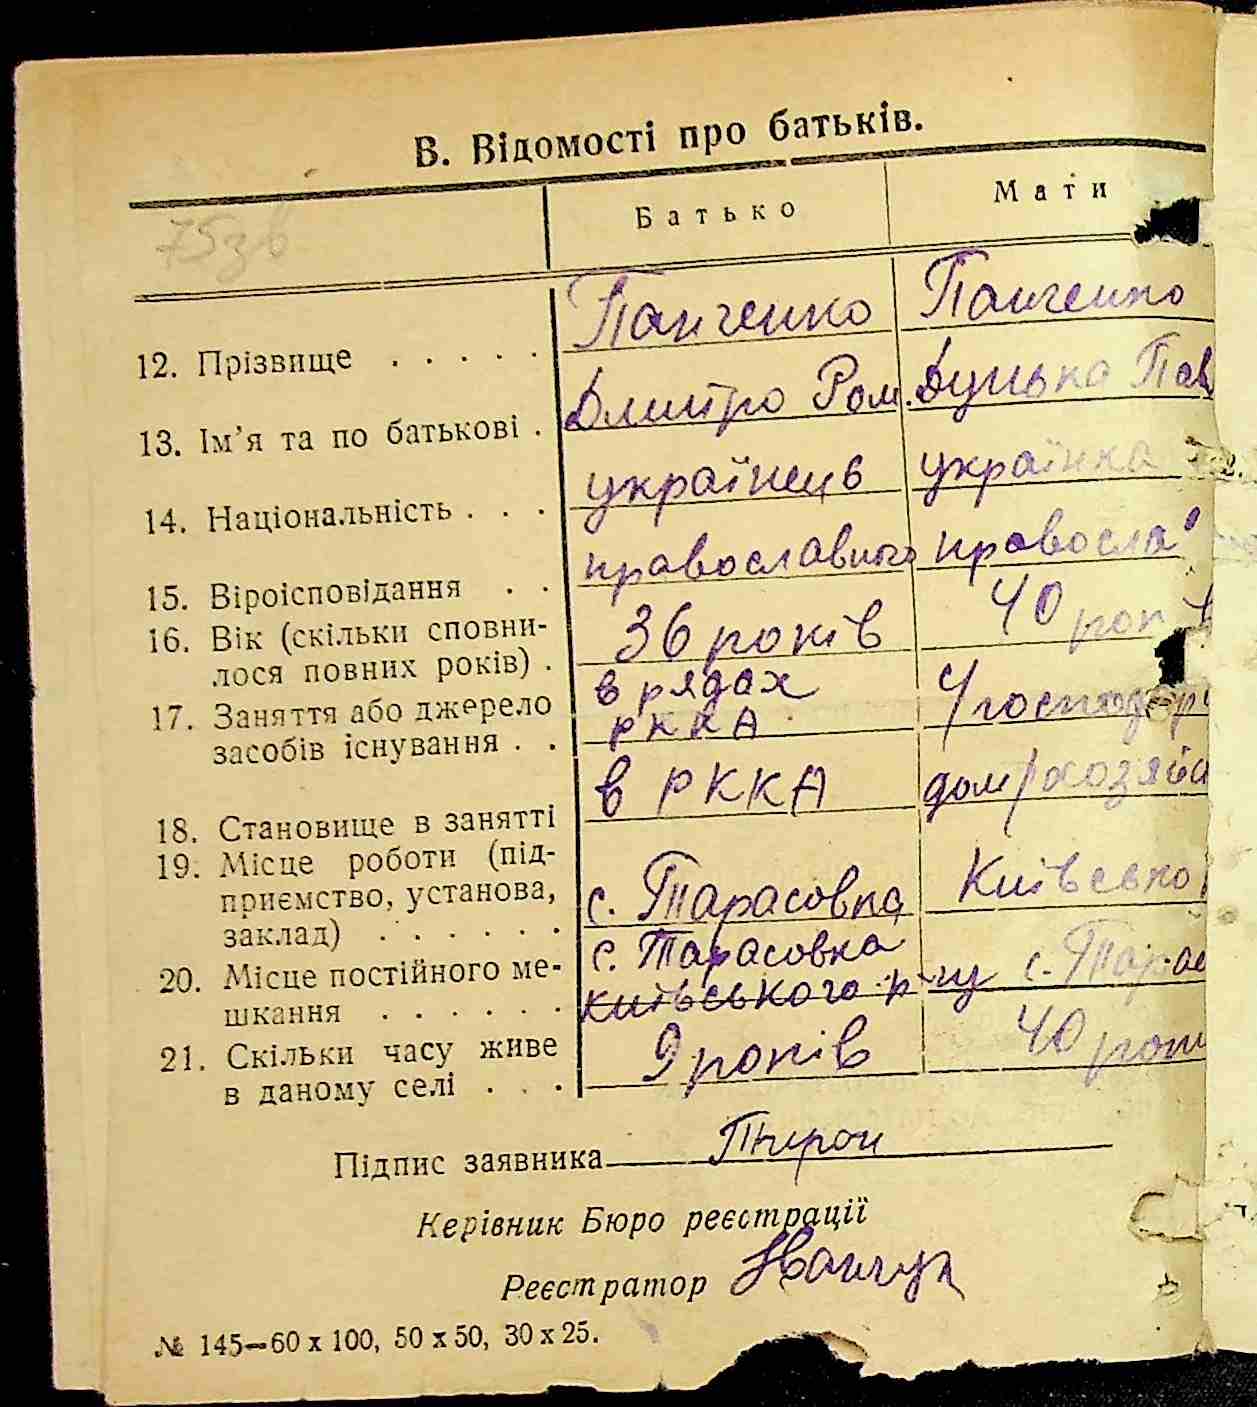 В. Відомості про батьків.
75зв
Батько Мати
12. Прізвище . . . . . Панченко Панченко
13. Ім'я та по батькові . Дмитро Ром. Дунька Пав
14. Національність . . . українець українка
15. Віроісповідання . . православного правосла
16. Вік (скільки сповни-
лося повних років) . 36 років 40 років
17. Заняття або джерело в рядах
засобів існування . . РККА
18. Становище в занятті в РККА
19. Місце роботи (під-
приємство, установа,
заклад) . . . . . . с. Тарасовка Київсько
20. Місце постійного ме- с. Тарасовка
шкання . . . . . . київського р-ну с. Тарас
21. Скільки часу живе
в даному селі . . . 9 років 40 рок
Підпис заявника
Керівник Бюро реєстрації
Реєстратор
№ 145—60 x 100, 50 x 50, 30 x 25.